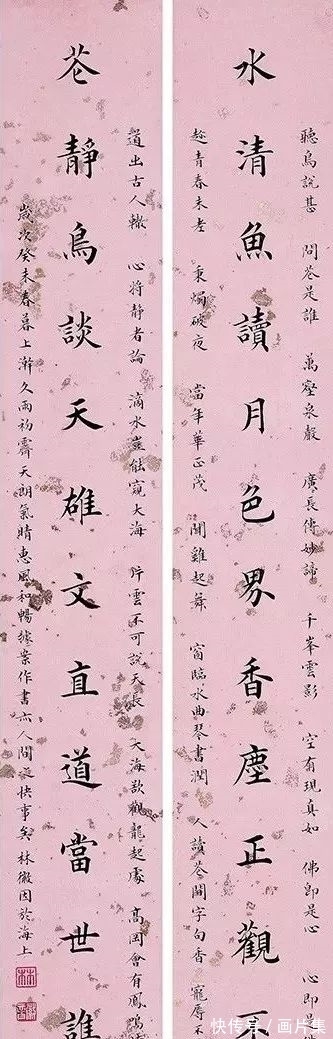 聽鳥說甚 問花是誰 萬壑泉聲 廣長傳妙諦 千峯雲影 空有現真如 佛即是心 心即是
水清魚讀月色界香塵正觀不
趁青春未老 秉燭破夜 當年華正茂 聞雞起舞 窗臨水曲琴書潤 人讀花間字句香 寵辱不
道出古人轍 心將靜者論 滴水豈能窺大海 片雲不可說天長 大海欲觀龍起處 高岡會有鳳鳴
花靜鳥談天雄文直道當世誰
歲次癸未春暮上澣久雨初霽天朗氣晴惠風和暢據案作書亦人間快事矣林徽因於海上
快传号/画片集